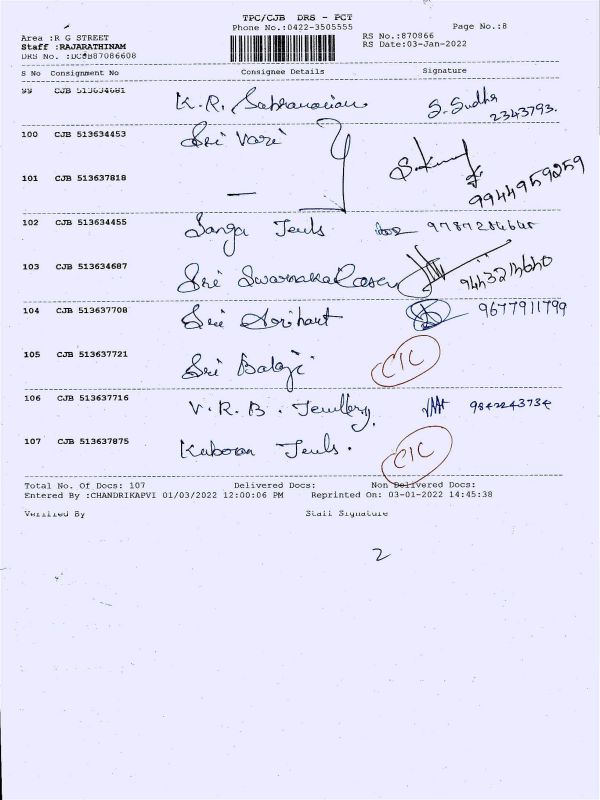 TPC/CJB DRS - PCT
Phone No.:0422-3505555 Page No.:8
Area :R G STREET RS No.:870866
Staff :RAJARATHINAM RS Date:03-Jan-2022
DRS No. :DCJB87086608
S No Consignment No Consignee Details Signature
99 CJB 513634681 K.R. S. Sudha 2343793.
100 CJB 513634453 Sri Vari
101 CJB 513637818 — 9944959259
102 CJB 513634455 Jewls
103 CJB 513634687 Sri
104 CJB 513637708 Sri Arihant 9677911799
105 CJB 513637721 Sri Balaji CIC
106 CJB 513637716 V.R.B. Jewllery, 9842243734
107 CJB 513637875 Jewls. CIC
Total No. Of Docs: 107 Delivered Docs: Non Delivered Docs:
Entered By :CHANDRIKAPVI 01/03/2022 12:00:06 PM Reprinted On: 03-01-2022 14:45:38
Verified By Staff Signature
2